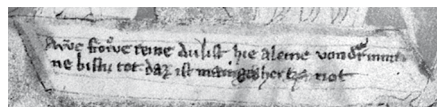 Awe frowe reine du list hie aleine von der minne
ne bistu tot daz ist manges hertze not